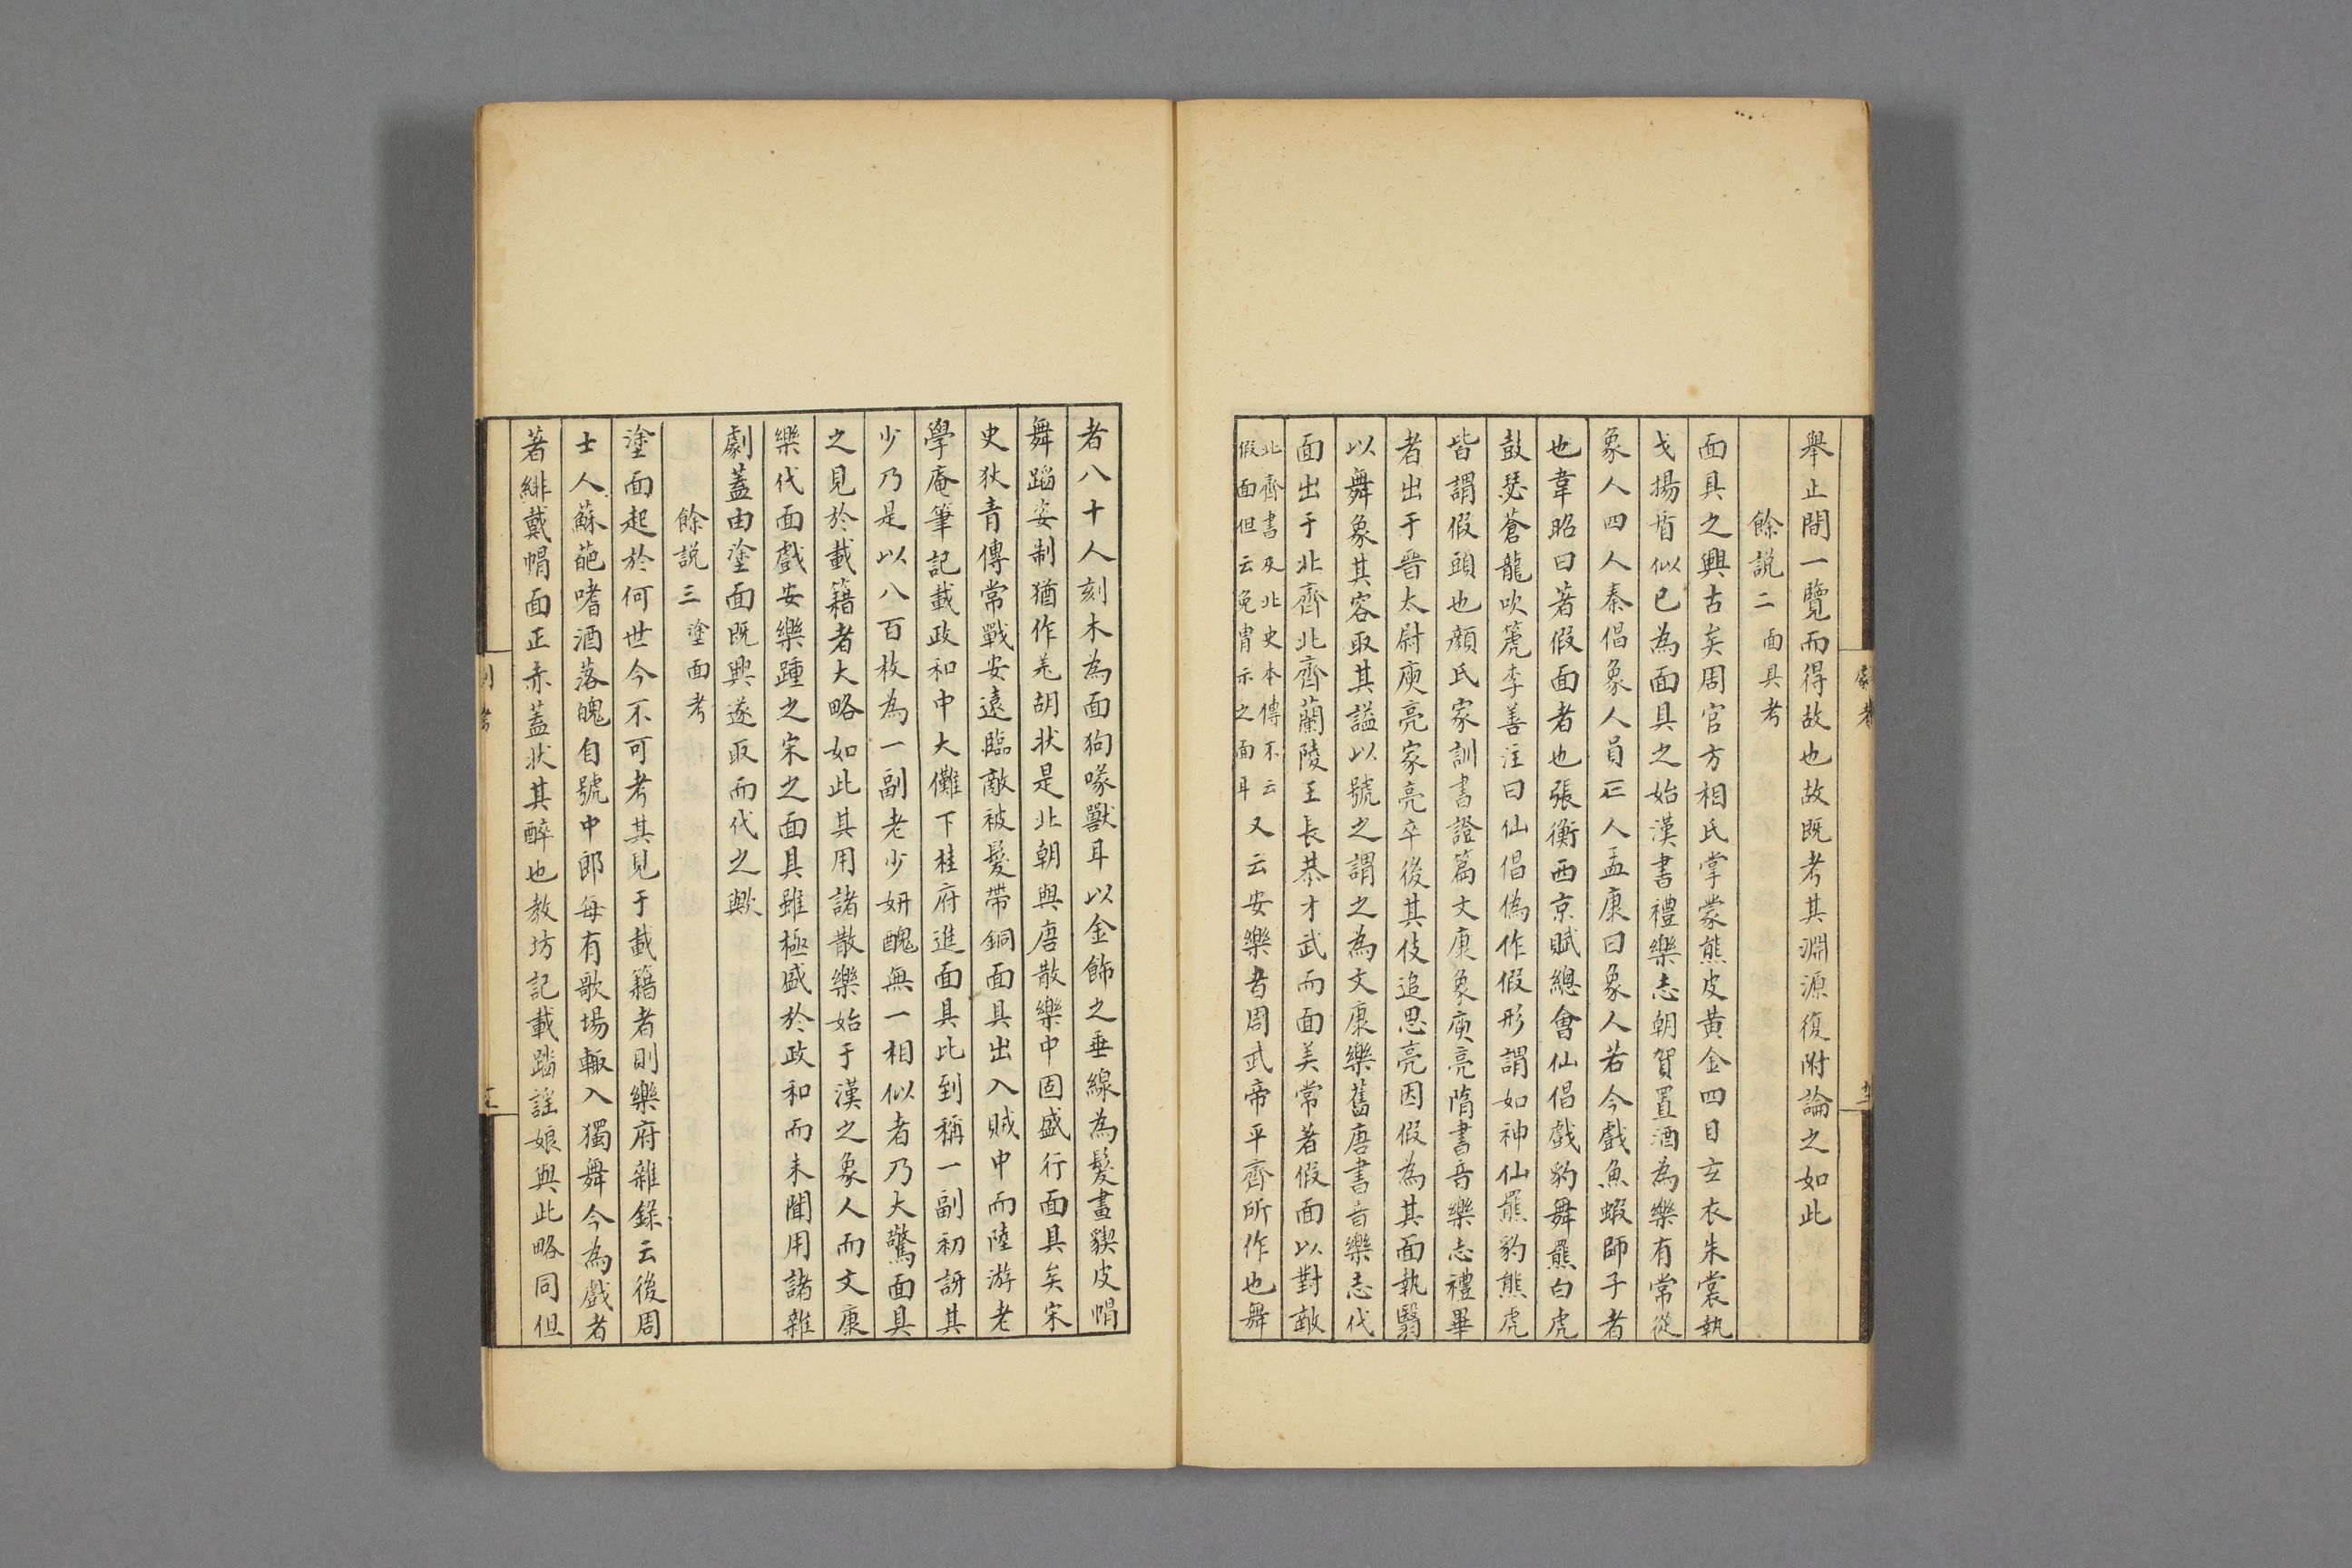 舉止間一覽而得故也故既考其淵源復附論之如此
餘説二面具考
面具之興古矣周官方相氏掌蒙熊皮黄金四目玄衣朱裳執
戈揚盾似已為面具之始漢書禮樂志朝賀置酒為樂有常從
象人四人秦倡象人員三人孟康曰象人若今戲魚蝦師子者
也韋昭曰著假面者也張衡西京賦總會仙倡戲豹舞羆白虎
鼓瑟蒼龍吹篪李善注曰仙倡偽作假形謂如神仙羆豹熊虎
皆謂假頭也顔氏家訓書證篇文康象庾亮隋書音樂志禮畢
者出于晉太尉庾亮家亮卒後其伎追思亮因假為其面執翳
以舞象其容取其謚以號之謂之為文康樂舊唐書音樂志代
面出于北齊北齊蘭陵王長恭才武而面美常著假面以對敵
北齊書及北史本傳不云
假面但云免冑示之面耳
又云安樂者周武帝平齊所作也舞
劇考
者八十人刻木為面狗喙獸耳以金飾之垂線為髮畫猰皮帽
舞蹈姿制猶作羌胡状是北朝與唐散樂中固盛行面具矣宋
史狄青傳常戰安遠臨敵被髮帶銅面具出入賊中而陸游老
學庵筆記載政和中大儺下桂府進面具比到稱一副初訝其
少乃是以八百枚為一副老少妍醜無一相似者乃大驚面具
之見於載籍者大略如此其用諸散樂始于漢之象人而文康
樂代面戲安樂踵之宋之面具雖極盛於政和而未聞用諸雜
劇蓋由塗面既興遂取而代之歟
餘説三塗面考
塗面起於何世今不可考其見于載籍者則樂府雜錄云後周
士人蘇葩嗜酒落魄自號中郎每有歌場輒入獨舞今為戲者
著緋戴帽面正赤蓋状其醉也教坊記載踏謡娘與此略同但